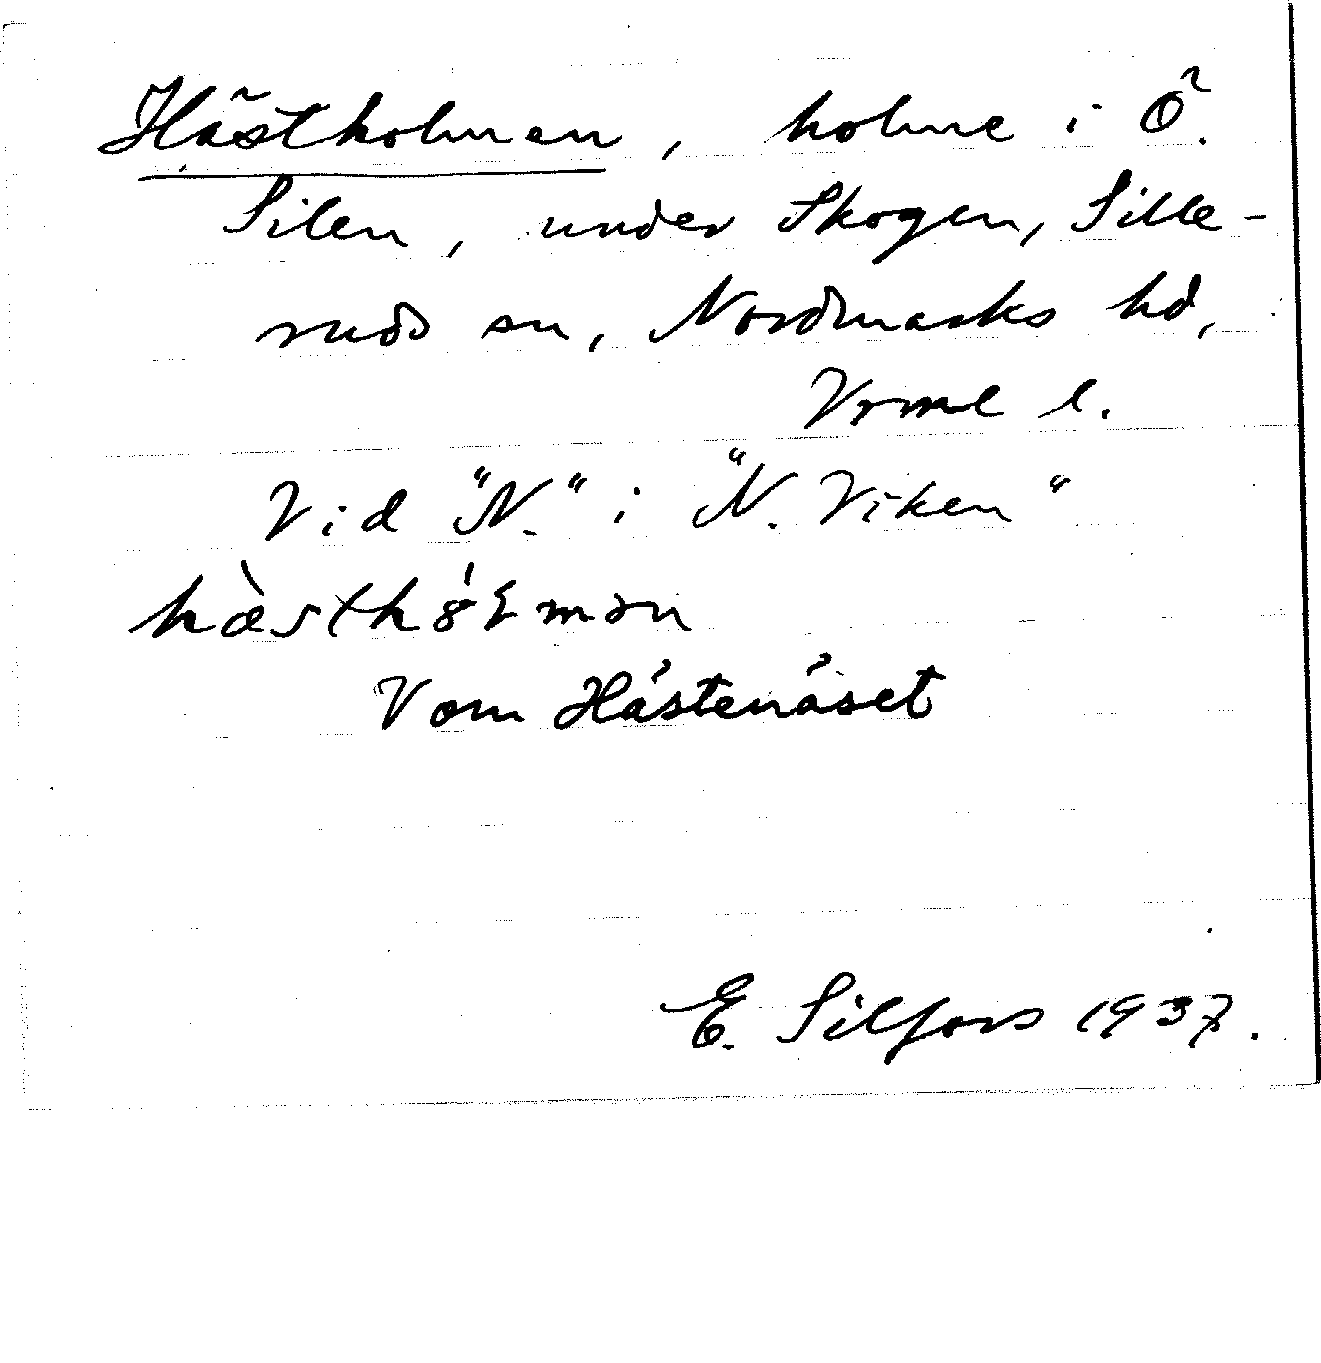 Hästholmen, holme i Ö.
Silen, under Skogen, Sille-
ruds sn, Nordmarks hd,
Vrml l.
Vid "N." i "N. Viken"
V om Hästenäset
E. Silfors 1937.